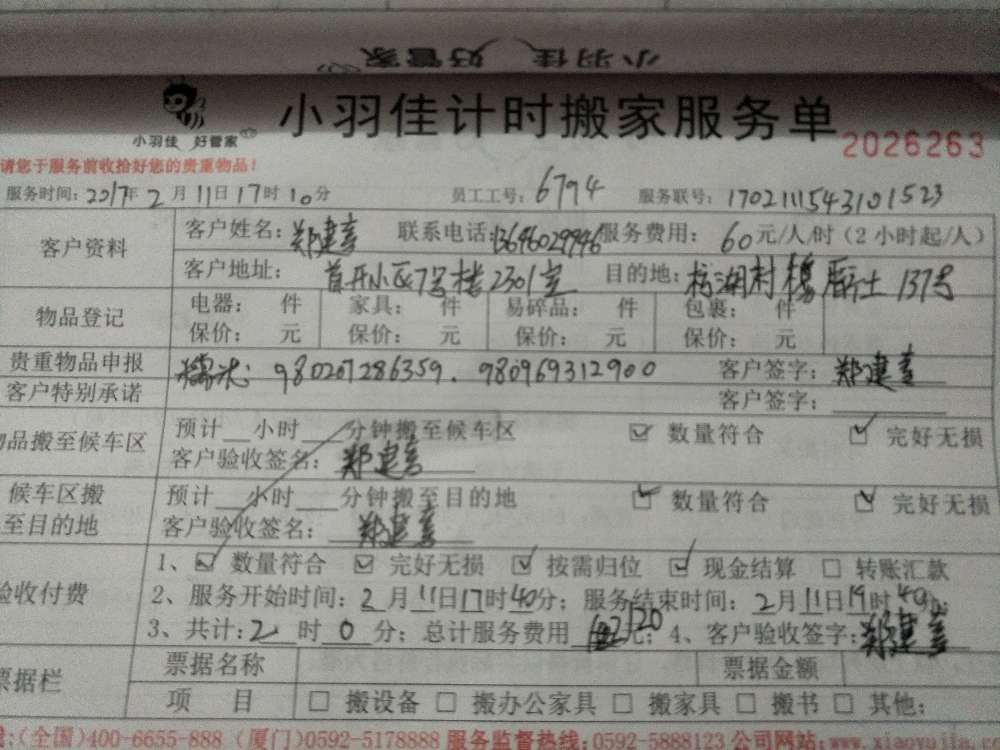 小羽佳 好管家
小羽佳 好管家
小羽佳计时搬家服务单
2026263
请您于服务前收拾好您的贵重物品！
服务时间：2017年2月11日17时10分 员工工号：6794 服务联号：1702111543101523
客户资料 客户姓名：郑建喜 联系电话：13696029946 服务费用：60元/人/时（2小时起/人）
客户地址：首开小区7号楼2301室 目的地：村 137号
物品登记 电器： 件 家具： 件 易碎品： 件 包裹： 件
保价： 元 保价： 元 保价： 元 保价： 元
贵重物品申报 糯米：980207286359．980969312900 客户签字：郑建喜
客户特别承诺 客户签字：
物品搬至候车区 预计__小时__分钟搬至候车区 ☑ 数量符合 ☑ 完好无损
客户验收签名：郑建喜
候车区搬至目的地 预计__小时__分钟搬至目的地 ☑ 数量符合 ☑ 完好无损
客户验收签名：郑建喜
验收付费 1、☑ 数量符合 ☑ 完好无损 ☑ 按需归位 ☑ 现金结算 □ 转账汇款
2、服务开始时间：2月11日17时40分；服务结束时间：2月11日19时40分
3、共计：2时0分；总计服务费用 120元；4、客户验收签字：郑建喜
票据栏 票据名称 票据金额
项 目 □ 搬设备 □ 搬办公家具 □ 搬家具 □ 搬书 □ 其他：
(全国)400-6655-888 (厦门)0592-5178888 服务监督热线：0592-5888123 公司网站：